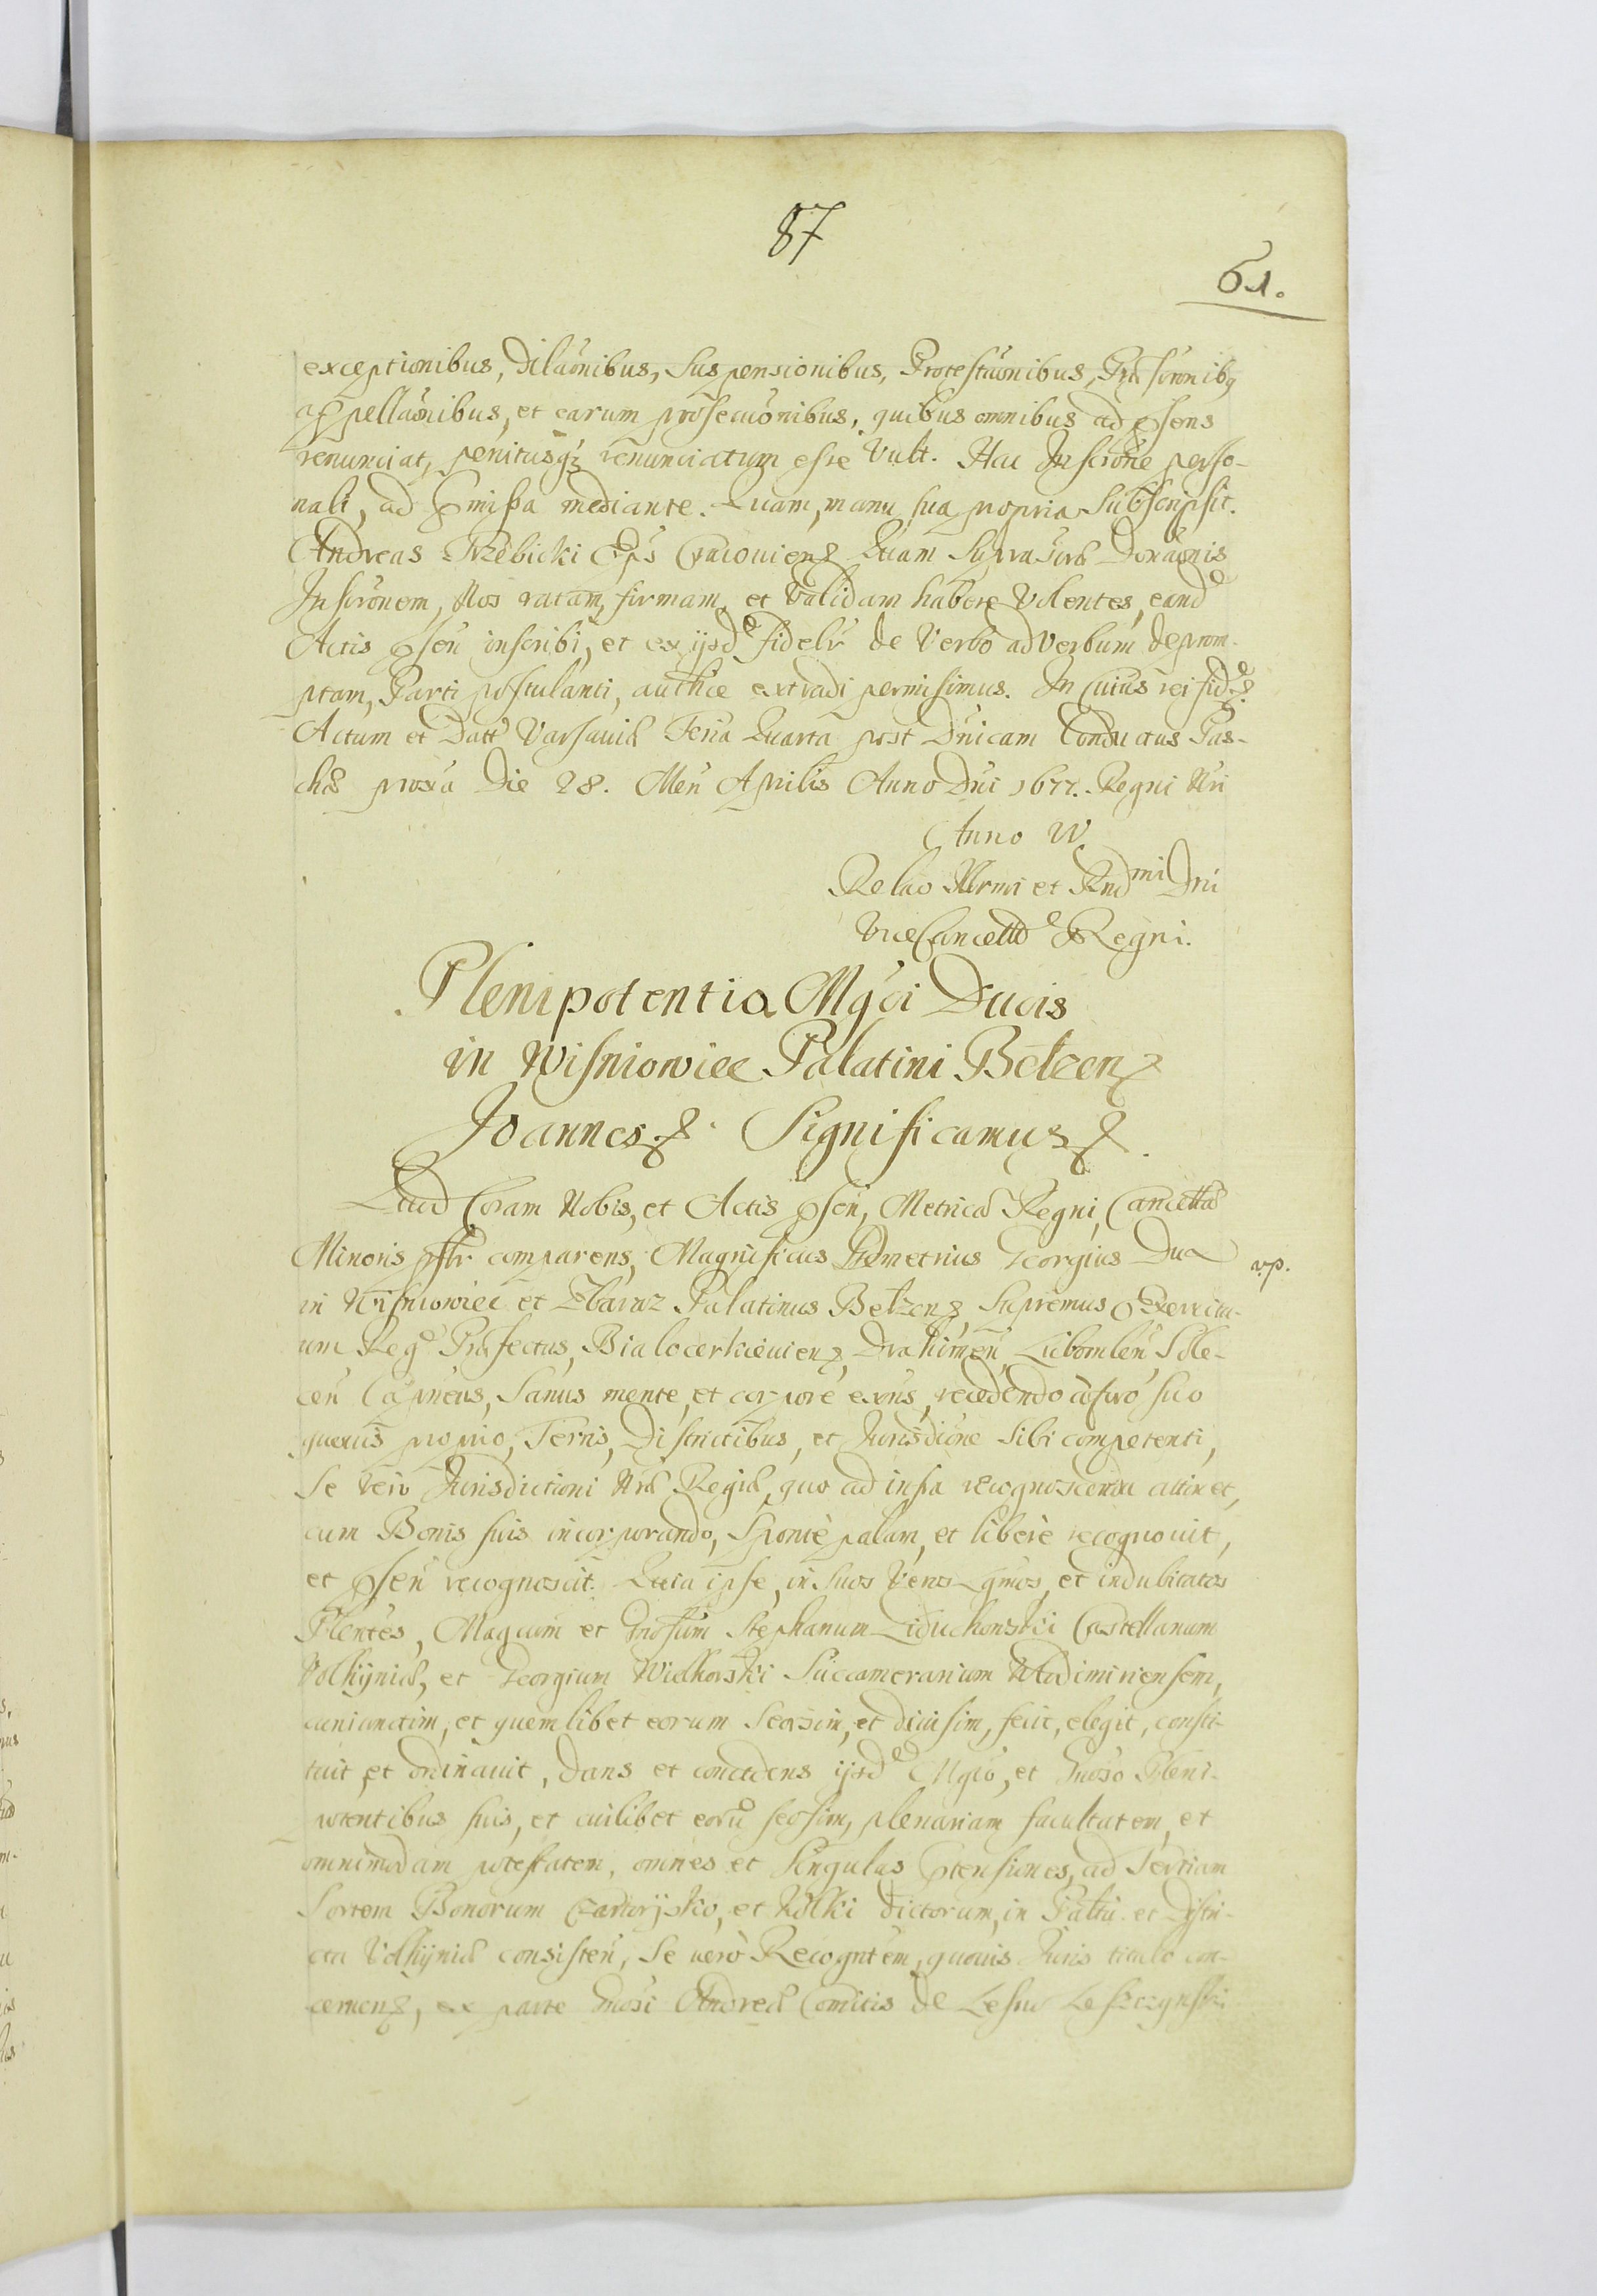 87
61.
exceptionibus, Dilaōnibus, Suspensionibus, Protestāonibus, Præscrōnibq
appellaōnibus, et earum prosecuōnibus, quibus omnibus ad psens
renunciat, penitusq; renunciatum esse Vult. Hac Inscrōne perso-
nali, ad pmissa mediante. Quam, manu sua propria Subscripsit.
Andreas Trzebicki Epūs Cracouien. Quam Supra Scrā Donaōnis
Inscrōnem, Nos ratam, firmam, et Validam habere Volentes, eand
Actis psen inscribi, et ex ijsd fidelr de Verbo ad Verbum deprom-
ptam, Parti postulanti, authce extradi permisimus. In Cuius rei fid
Actum et Datt Varsauiæ Feria Quarta post Dnicam Conductus Pas-
chæ proxa Die 28. Men Aprilis Anno Dni 1677. Regni Nri
Anno IV
Relao Illrmi et Rndmi Dni
ViceCancellr Regni.
Plenipotentia Mgci Ducis
in Wisniowiec Palatini Belzen
Joannes. Significamus.
Quod Coram Nobis, et Actis psen, Metricæ Regni, Cancellæ
Minoris psolr comparens, Magnificus Demetrius Georgius Dux
vp.
in Wisniowiec et Zbaraz Palatinus Belzen, Supremus Exercitu-
um Reg Præfectus, Bialocerkieuien, Drahimen, Lubomlen, Sole-
cen Capneus, Sanus mente, et corpore exns, recedendo a foro suo
quouis proprio, Terris, Districtibus, et Jurisdione Sibi competenti,
Se vero Jurisdictioni Nræ Regiæ, quo ad infra recognoscenda attinet,
cum Bonis suis incorporando, Sponte palam, et libere recognouit,
et psen recognoscit. Quia ipse, in Suos Veros, gnnos, et indubitatos
Plentes, Magcum et Grosum Stephanum Liduchowski Castellanum
Volhyniæ, et Georgium Wielhorski Succamerarium Wlodimiriensem,
coniunctim, et quemlibet eorum Seorsim, et diuisim, fecit, elegit, consti-
tuit, et ordinauit, Dans et concedens ijsd Mgco, et Gnoso Pleni-
potentibus suis, et cuilibet eoru seorsim, plenariam facultatem, et
omnimodam potestatem, omnes et Singulas Ptensiones, ad Tertiam
Sortem Bonorum Czartorysko, et Kolki dictorum, in Paltu et Distri-
ctu Volhyniæ consisten, Se uero Recogntem, quouis Juris titulo con-
cernen, ex parte Gnosi Andreæ Comitis de Lesno Leszczynski